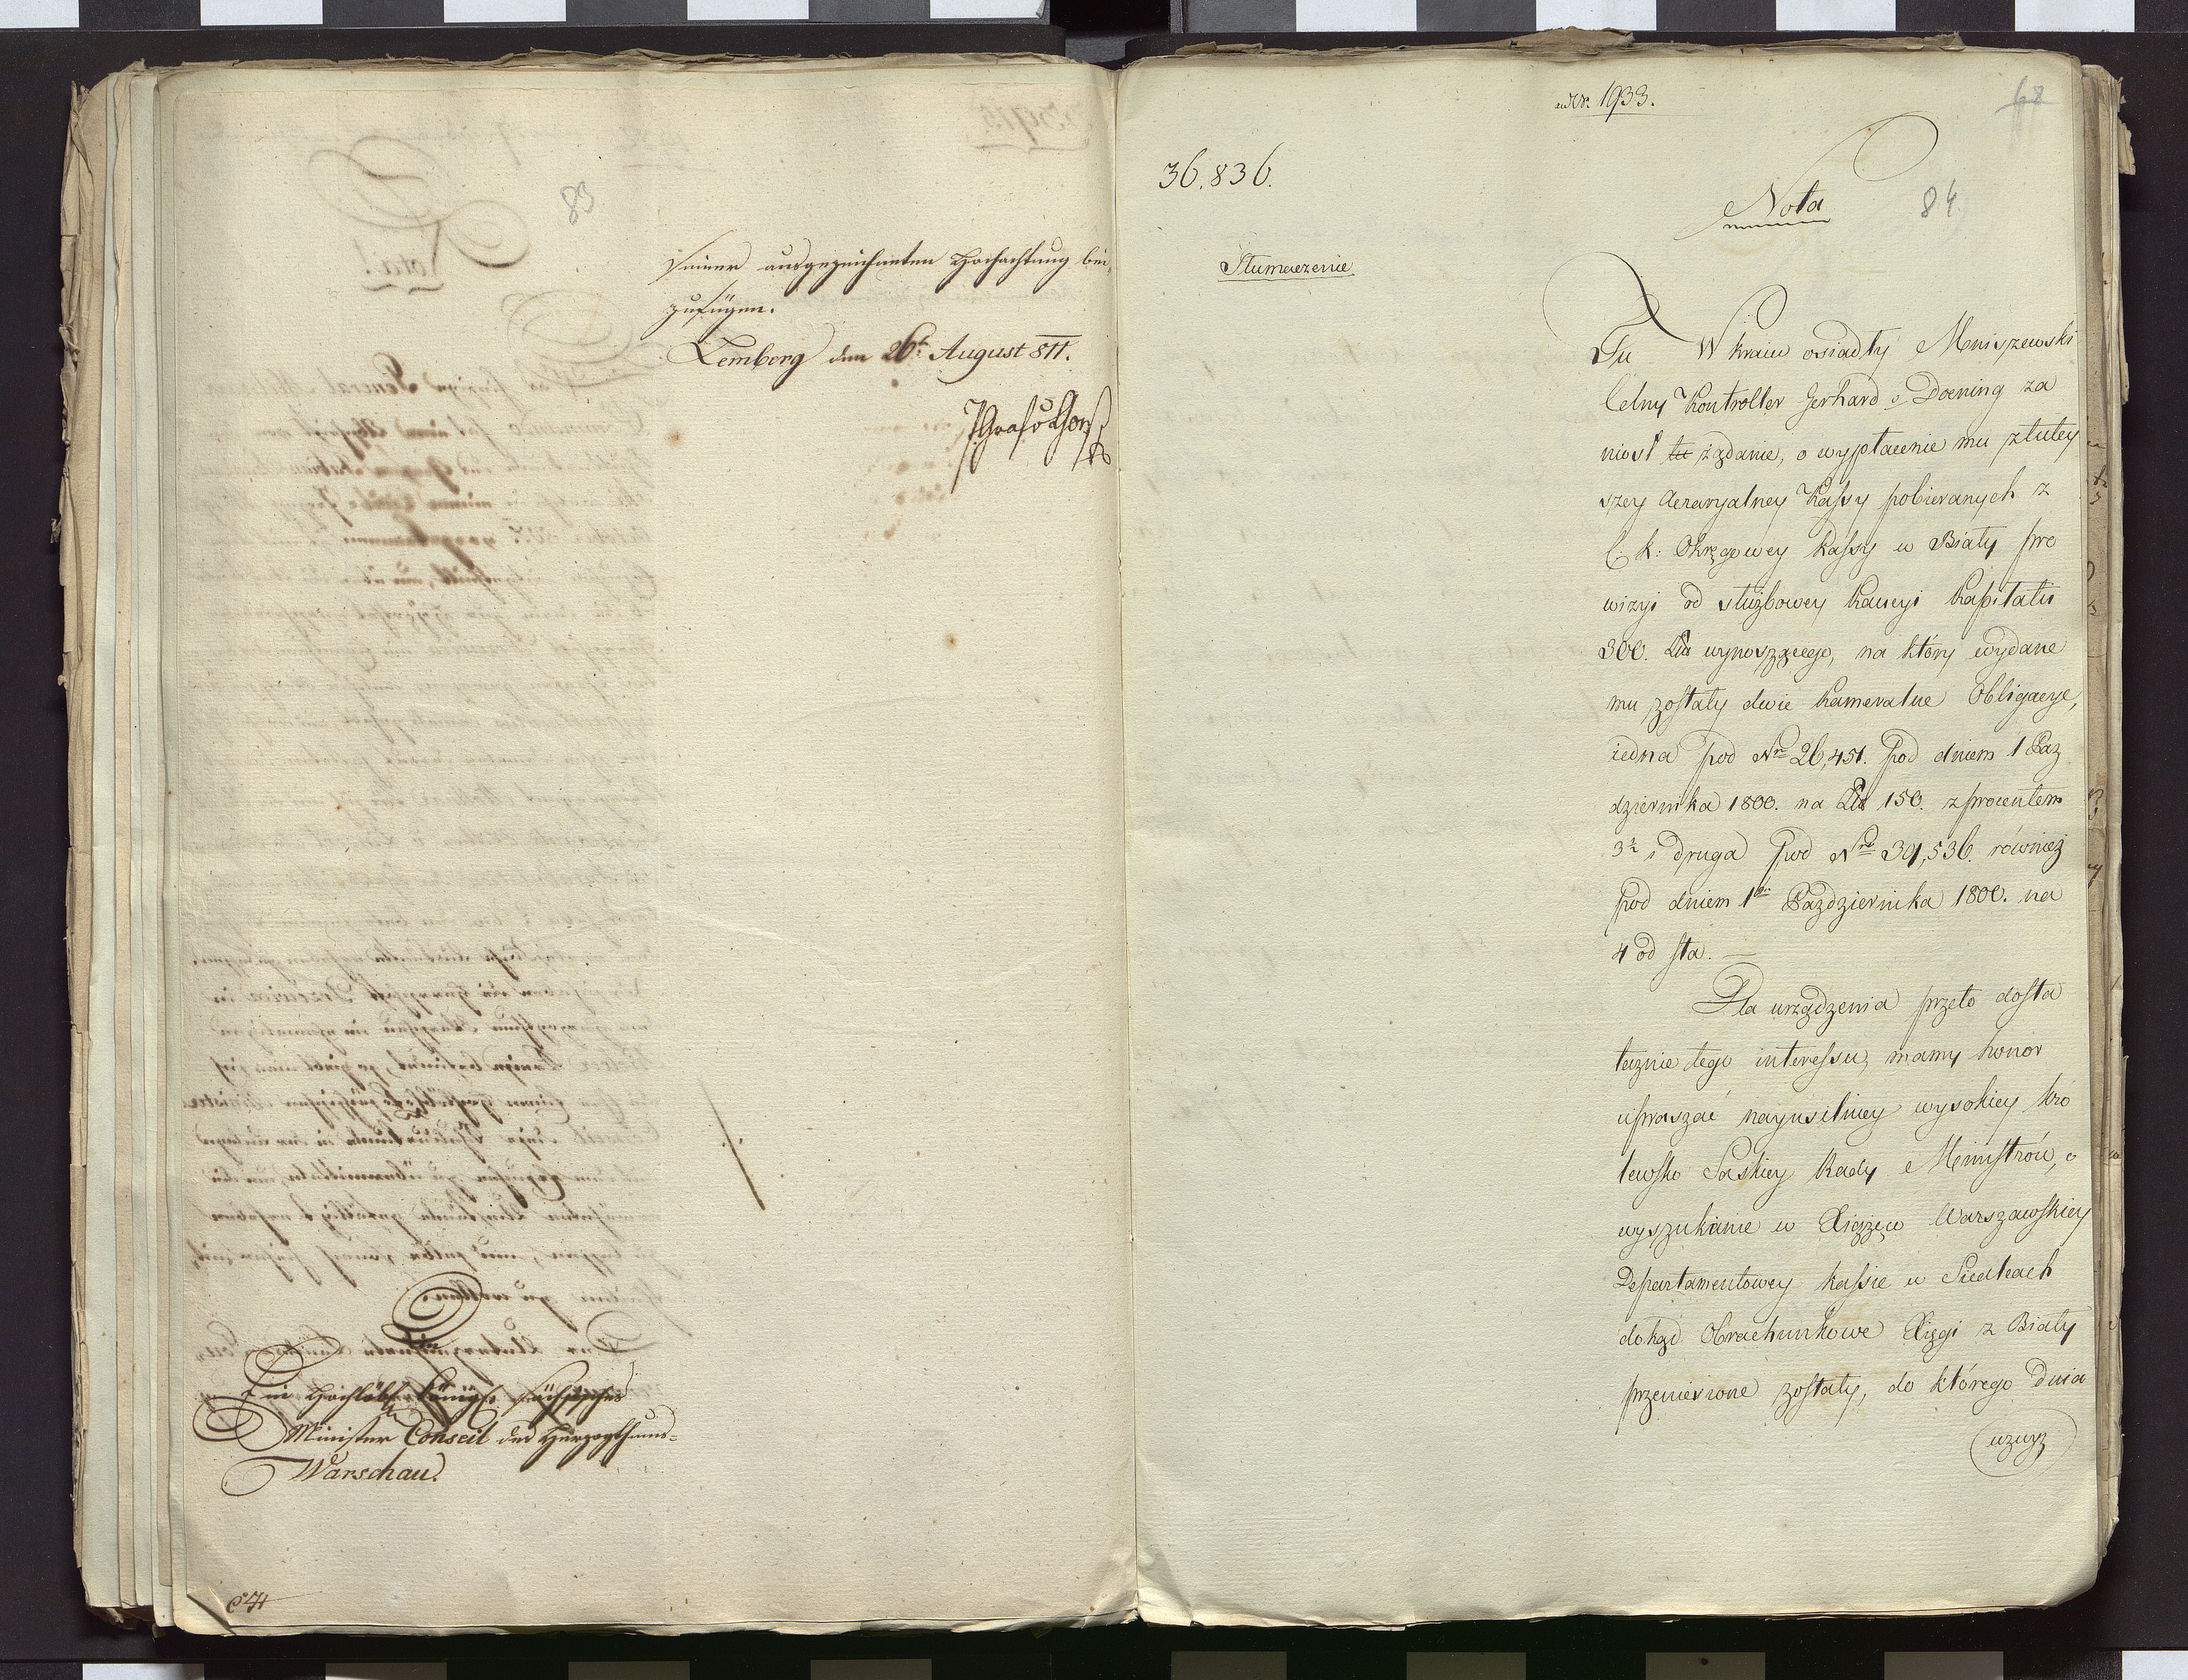 83
seiner ausgezeichneten Hochachtung bei,
zufügen.
Lemberg den 26t August 811.
Ein Hochlöbl. Königl. Sächsisches
Minister Conseil des Herzogthums-
Warschau.
ad Nr. 1933.
68
36,836.
Nota
84
Tłumaczenie
Tu W kraiu osiadły Mniszewski
Celny Kontroller Gerhard v Doening za
niosł tu żądanie, o wypłacenie mu ztutey
szey Aeraryalney Kassy pobieranych z
C. k: Okręgowey kassy w Biały pro
wizyi od służbowey kaucyi kapitału
300. wynoszącego, na który wydane
mu zostały dwie kameralne Obligacye,
iedna pod Nro 26,451. pod dniem 1 Paz
dziernika 1800. na 150. zprocentem
3½ i druga pod Nro 39,536. również
pod dniem 1go Pazdziernika 1800. na
4 od sta. —
Dla urządzenia przeto dosta
tecznie tego interessu, mamy honor
upraszać nayusilniey wysokiey kró
lewsko Saskiey Rady Ministrów, o
wyszukanie w Xiążęco Warszawskiey
Departamentowey kassie w Siedlcach
dokąd Obrachunkowe Xięgi z Biały
przeniesione zostały, do którego dnia